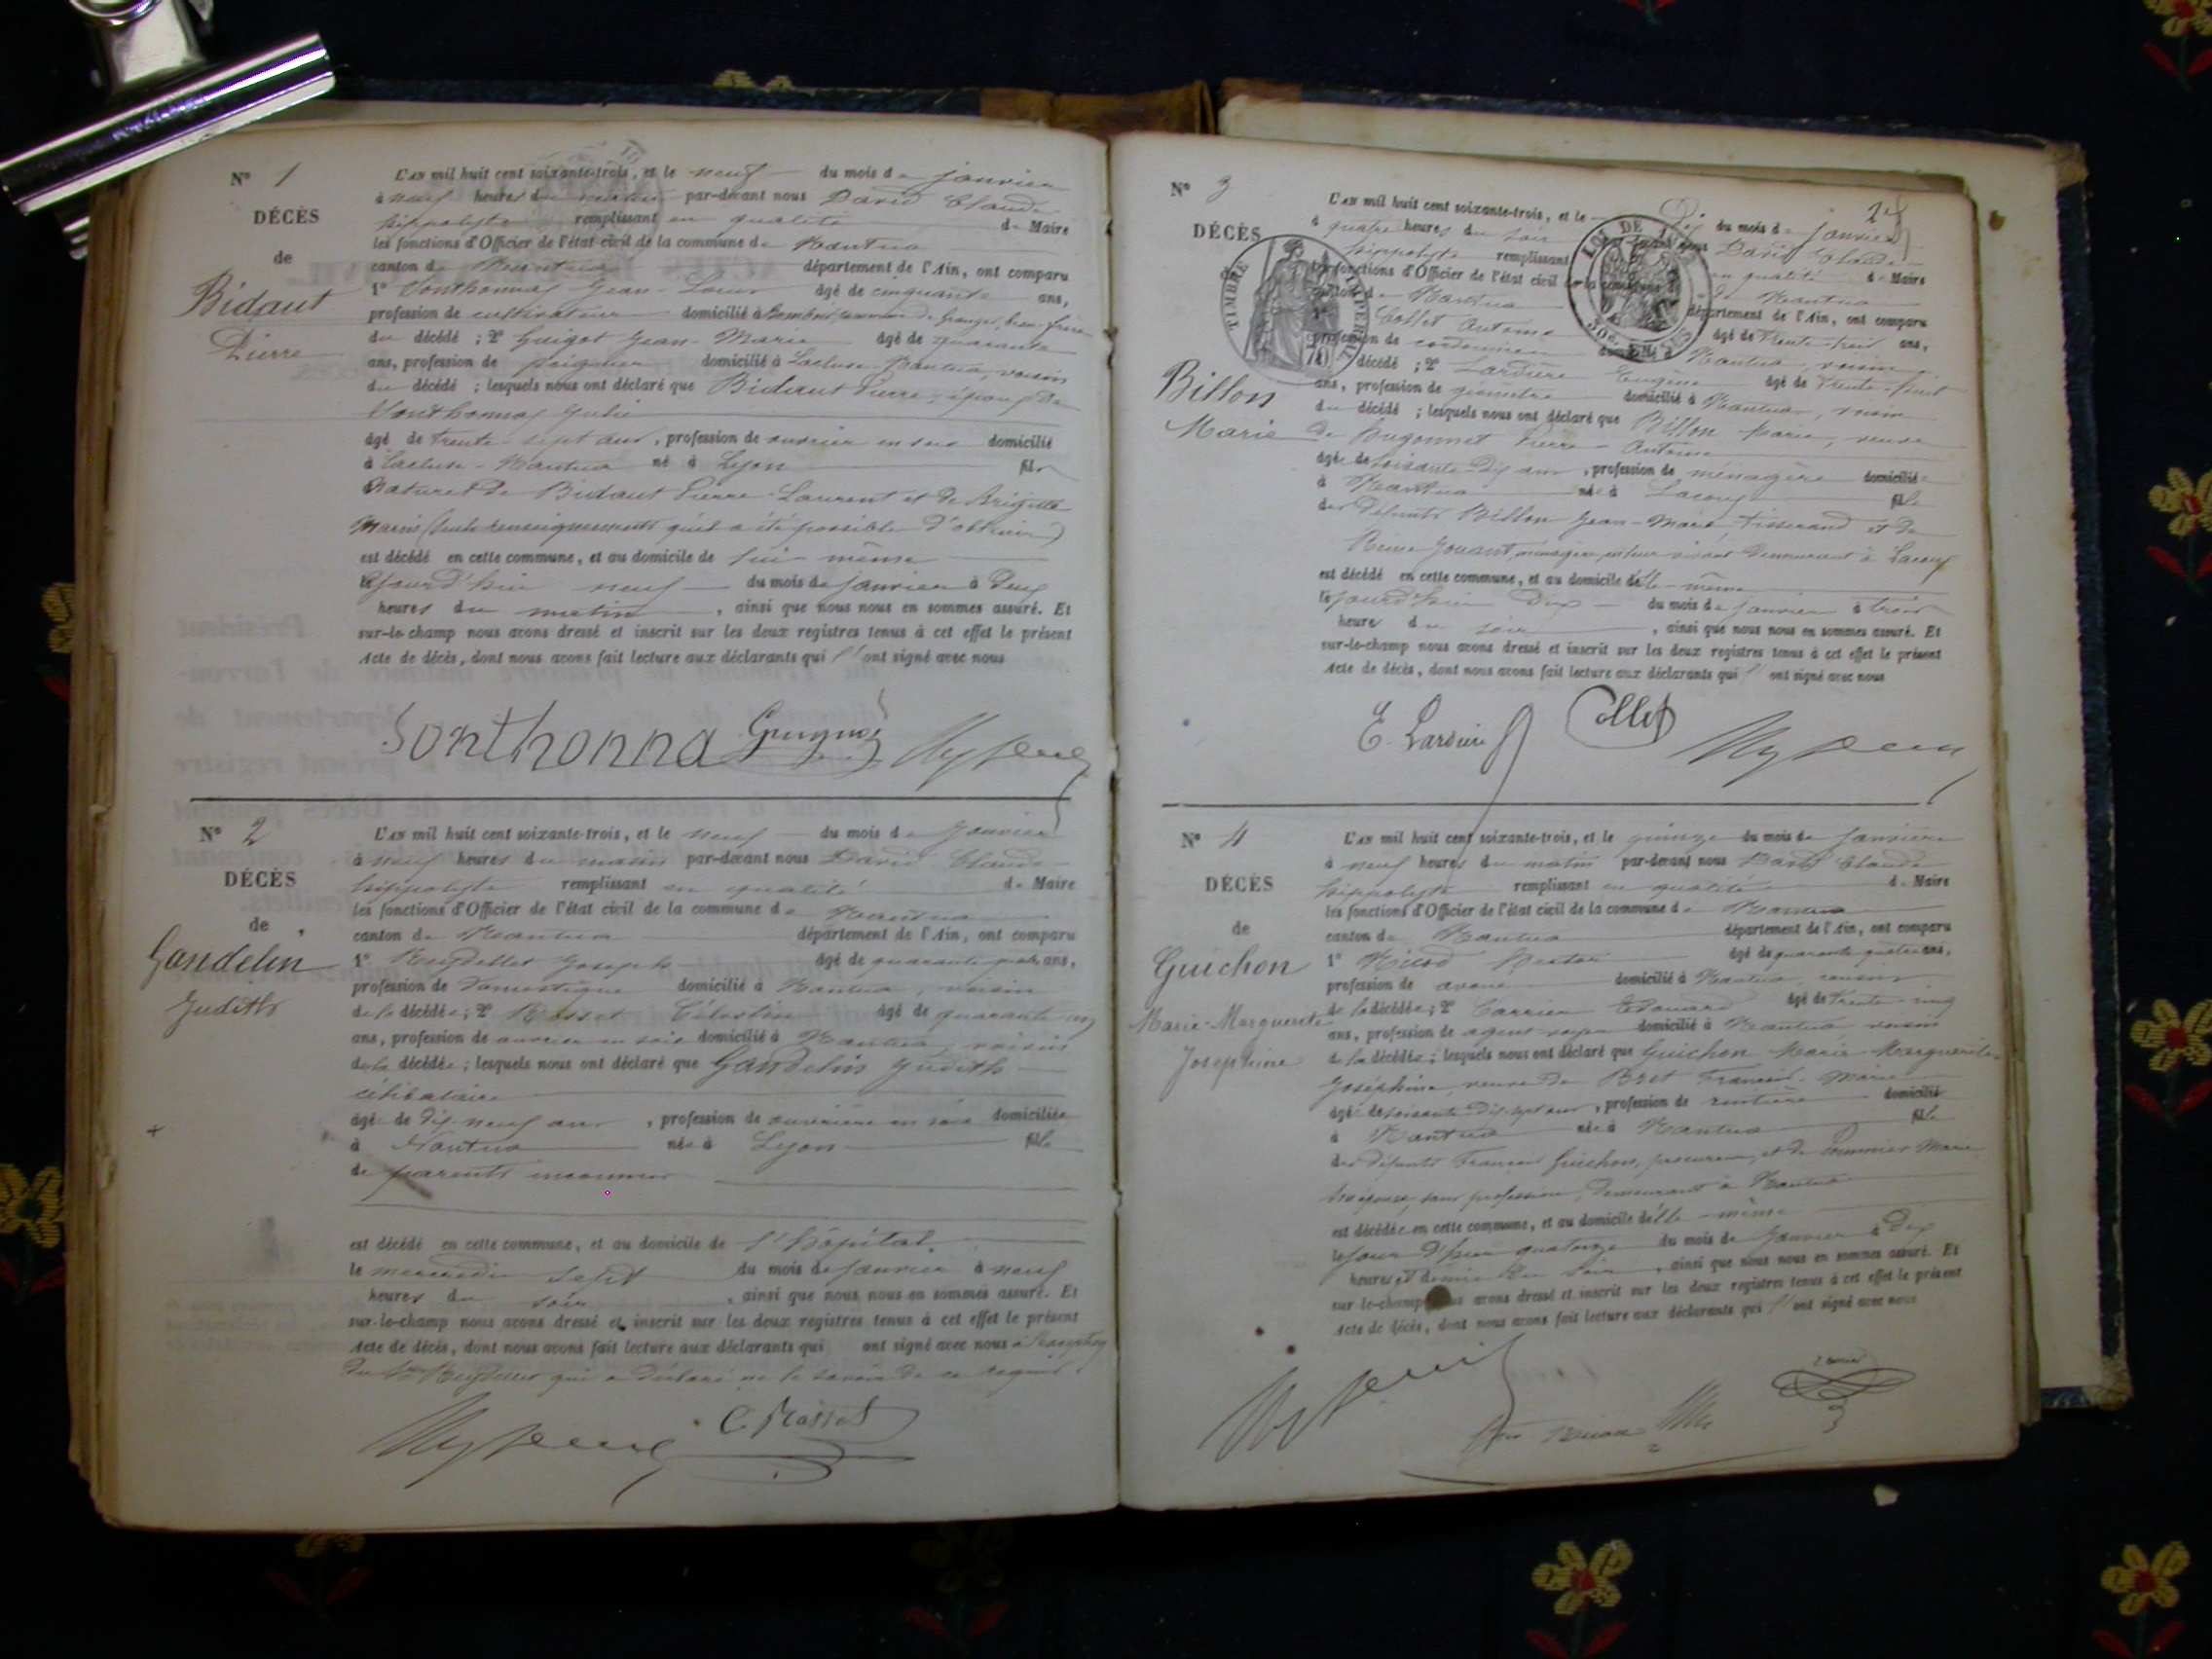 N° 1
DÉCÈS
de
Bidaut
Pierre
L'AN mil huit cent soixante-trois, et le neuf du mois de janvier
à neuf heures du matin par-devant nous David Claude
hippolyte remplissant en qualité de Maire
les fonctions d'Officier de l'état civil de la commune de Nantua
canton de Nantua département de l'Ain, ont comparu
1° Sonthonnas Jean-Louis âgé de cinquante ans,
profession de cultivateur domicilié à commune de Granges, beau-frère
du décédé ; 2° Guigot Jean-Marie âgé de quarante
ans, profession de peignier domicilié à Lacluse-Nantua, voisin
du décédé ; lesquels nous ont déclaré que Bidaut Pierre, époux de
Sonthonnas Julie
âgé de trente-sept ans, profession de ouvrier en soie domicilié
à Lacluse-Nantua né à Lyon fils
naturel de Bidaut Pierre-Laurent et de Brigitte
Marin (seuls renseignements qu'il a été possible d'obtenir)
est décédé en cette commune, et au domicile de lui-même
cejourd'hui neuf du mois de janvier à deux
heures du matin, ainsi que nous nous en sommes assuré. Et
sur-le-champ nous avons dressé et inscrit sur les deux registres tenus à cet effet le présent
Acte de décès, dont nous avons fait lecture aux déclarants qui l' ont signé avec nous
Sonthonna
N° 2
DÉCÈS
de
Gandelin
Judith
L'AN mil huit cent soixante-trois, et le neuf du mois de Janvier
à neuf heures du matin par-devant nous David Claude
hippolyte remplissant en qualité de Maire
les fonctions d'Officier de l'état civil de la commune de Nantua
canton de Nantua département de l'Ain, ont comparu
1° Reydellet Joseph âgé de quarante ans,
profession de Domestique domicilié à Nantua, voisin
de la décédée ; 2° Rosset Célestin âgé de quarante cinq
ans, profession de ouvrier en soie domicilié à Nantua, voisin
de la décédée ; lesquels nous ont déclaré que Gandelin Judith
célibataire
âgée de dix-neuf ans, profession de ouvrière en soie domiciliée
à Nantua née à Lyon fille
de parents inconnus
est décédé en cette commune, et au domicile de l'hôpital,
le mercredi sept du mois de janvier à neuf
heures du soir, ainsi que nous nous en sommes assuré. Et
sur-le-champ nous avons dressé et inscrit sur les deux registres tenus à cet effet le présent
Acte de décès, dont nous avons fait lecture aux déclarants qui ont signé avec nous à l'exception
du Sr Reydellet qui a déclaré ne le savoir de ce requis.
C. Rosset
N° 3
DÉCÈS
Billon
Marie
TIMBRE IMPERIAL
LOI DE
L'AN mil huit cent soixante-trois, et le Dix du mois de janvier
à quatre heures du soir David Claude
hippolyte remplissant en qualité de Maire
les fonctions d'Officier de l'état civil de la commune de Nantua
canton de Nantua département de l'Ain, ont comparu
Collet Antoine âgé de trente-trois ans,
profession de cordonnier domicilié à Nantua, voisin
décédé ; 2° Lardière Eugène âgé de trente-huit
ans, profession de géomètre domicilié à Nantua, voisin
du décédé ; lesquels nous ont déclaré que Billon Marie, veuve
de Bugonnet Pierre-Antoine
âgé de soixante-dix ans, profession de ménagère domiciliée
à Nantua née à Lacoux fille
des défunts Billon Jean-Marie, tisserand et de
Reine Jouant ménagère, en leur vivant demeurant à Lacoux
est décédé en cette commune, et au domicile d'elle-même
cejourd'hui dix du mois de janvier à trois
heure du soir, ainsi que nous nous en sommes assuré. Et
sur-le-champ nous avons dressé et inscrit sur les deux registres tenus à cet effet le présent
Acte de décès, dont nous avons fait lecture aux déclarants qui l' ont signé avec nous
E. Lardière Collet
N° 4
DÉCÈS
de
Guichon
Marie-Marguerite
Joséphine
L'AN mil huit cent soixante-trois, et le quinze du mois de Janvier
à neuf heures du matin par-devant nous David Claude
hippolyte remplissant en qualité de Maire
les fonctions d'Officier de l'état civil de la commune de Nantua
canton de Nantua département de l'Ain, ont comparu
1° âgé de quarante quatre ans,
profession de avoué domicilié à Nantua, voisin
de la décédée ; 2° Carrier Edouard âgé de trente cinq
ans, profession de agent voyer domicilié à Nantua voisin
de la décédée ; lesquels nous ont déclaré que Guichon Marie-Marguerite
Joséphine, veuve de Bret François-Marie
âgée de soixante dix-sept ans, profession de rentière domicilié
à Nantua née à Nantua fille
des défunts François Guichon, procureur, et de Marie
son épouse, sans profession, demeurant à Nantua
est décédée en cette commune, et au domicile d'elle-même
le jour d'hier quatorze du mois de Janvier à dix
heures et demie du soir, ainsi que nous nous en sommes assuré. Et
sur-le-champ nous avons dressé et inscrit sur les deux registres tenus à cet effet le présent
Acte de décès, dont nous avons fait lecture aux déclarants qui l' ont signé avec nous